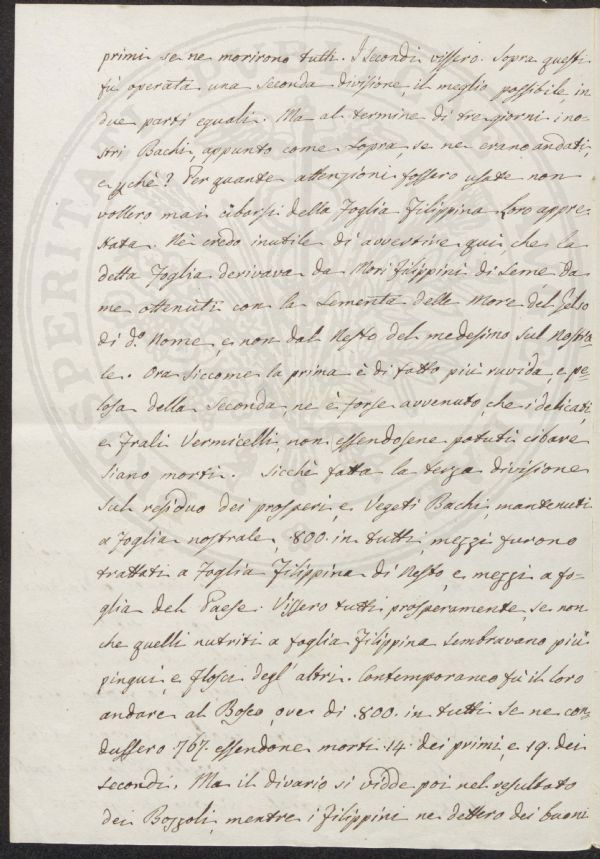 primi se ne morirono tutti. I secondi vissero. Sopra questi
fù operata una seconda divisione il meglio possibile in
due parti eguali. Ma al termine di tre giorni i no-
stri Bachi, appunto come sopra, se ne erano andati,
e pchè? Per quante attenzioni fossero usate non
vollero mai cibarsi della Foglia Filippina loro appre
stata. Nè credo inutile di avvertire qui, che la
detta Foglia derivava da Mori Filippini di Seme da
me ottenuti con la Sementa delle More del Gelso
di do. Nome, e non dal Nesto del medesimo sul Nostra
le. Ora siccome la prima è di fatto più ruvida, e pe-
losa della seconda, ne è forse avvenuto, che i delicati,
e frali Vermicelli, non essendosene potuti cibare
siano morti. Sicchè fatta la terza divisione
sul residuo dei prosperi, e Vegeti Bachi, mantenuti
a Foglia nostrale, 800. in tutti, mezzi furono
trattati a Foglia Filippina di Nesto, e mezzi a fo-
glia del Paese. Vissero tutti prosperamente, se non
che quelli nutriti a foglia Filippina sembravano più
pingui, e flosci degl' altri. Contemporaneo fù il loro
andare al Bosco, ove di 800. in tutti se ne con
dussero 767. essendone morti 14. dei primi, e 19. dei
secondi. Ma il divario si vidde poi nel resultato
dei Bozzoli, mentre i Filippini ne dettero dei buoni